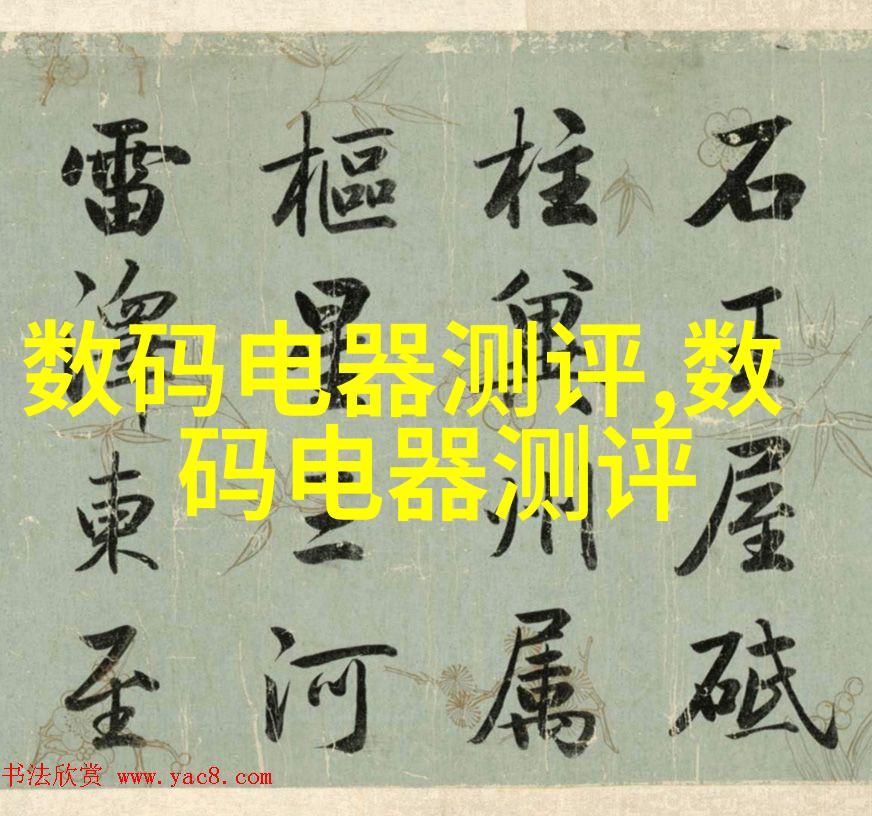 数码电器测评,数
码电器测评
石王屋砥
柱冀州属
樞星三河
雷澤東至
书法欣赏 www.yac8.com